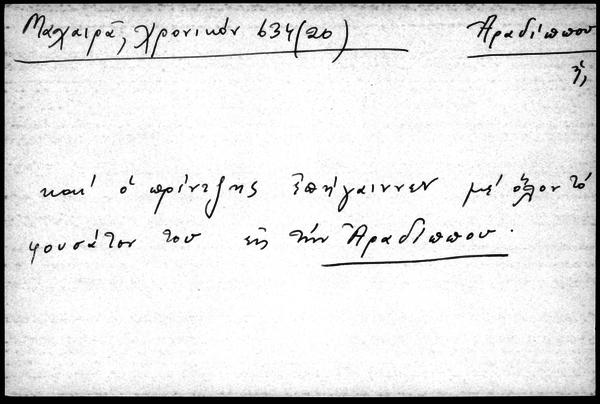 Μαχαιρᾶ, Χρονικόν 634(20) Ἀραδίππου
ἡ,
καί ὁ πρίντζης ἐπήγαιννεν μέ ὅλον τό
φουσάτον του εἰς τήν Ἀραδίππου.